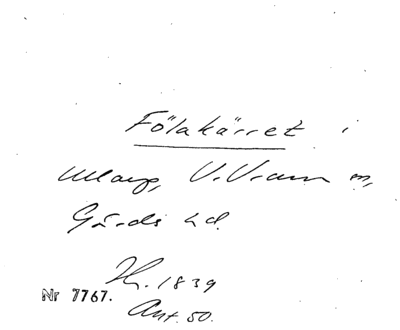 Fölakärret i
Ullarp, V. Vram sn,
Gärds hd.
Hr. 1839
Nr 7767.
Ant. 50.